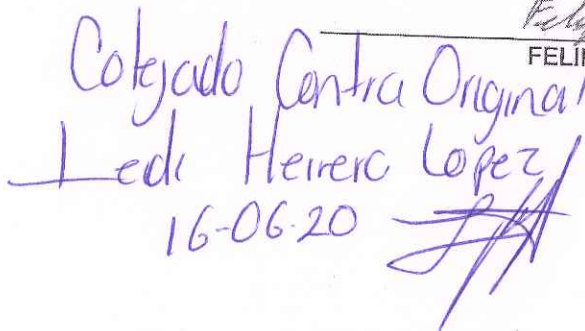 FELI
Cotejado Contra Original
Ledi Herrera Lopez
16-06-20